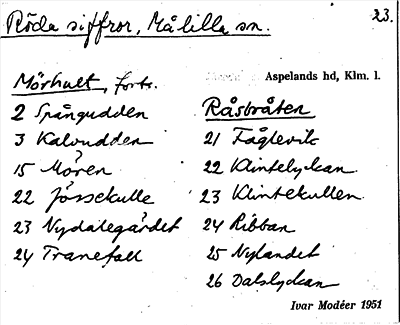 Röda siffror, Målilla sn.
23.
Aspelands hd, Klm. l.
Mörhult, forts.
2 Spångudden
3 Kalvudden
15 Mören
22 Jössekulle
23 Nydalegärdet
24 Tranefall
Råsbråten
21 Fåglevik
22 Klintelyckan
23 Klintekullen
24 Ribban
25 Nylandet
26 Dalslyckan
Ivar Modéer 1951